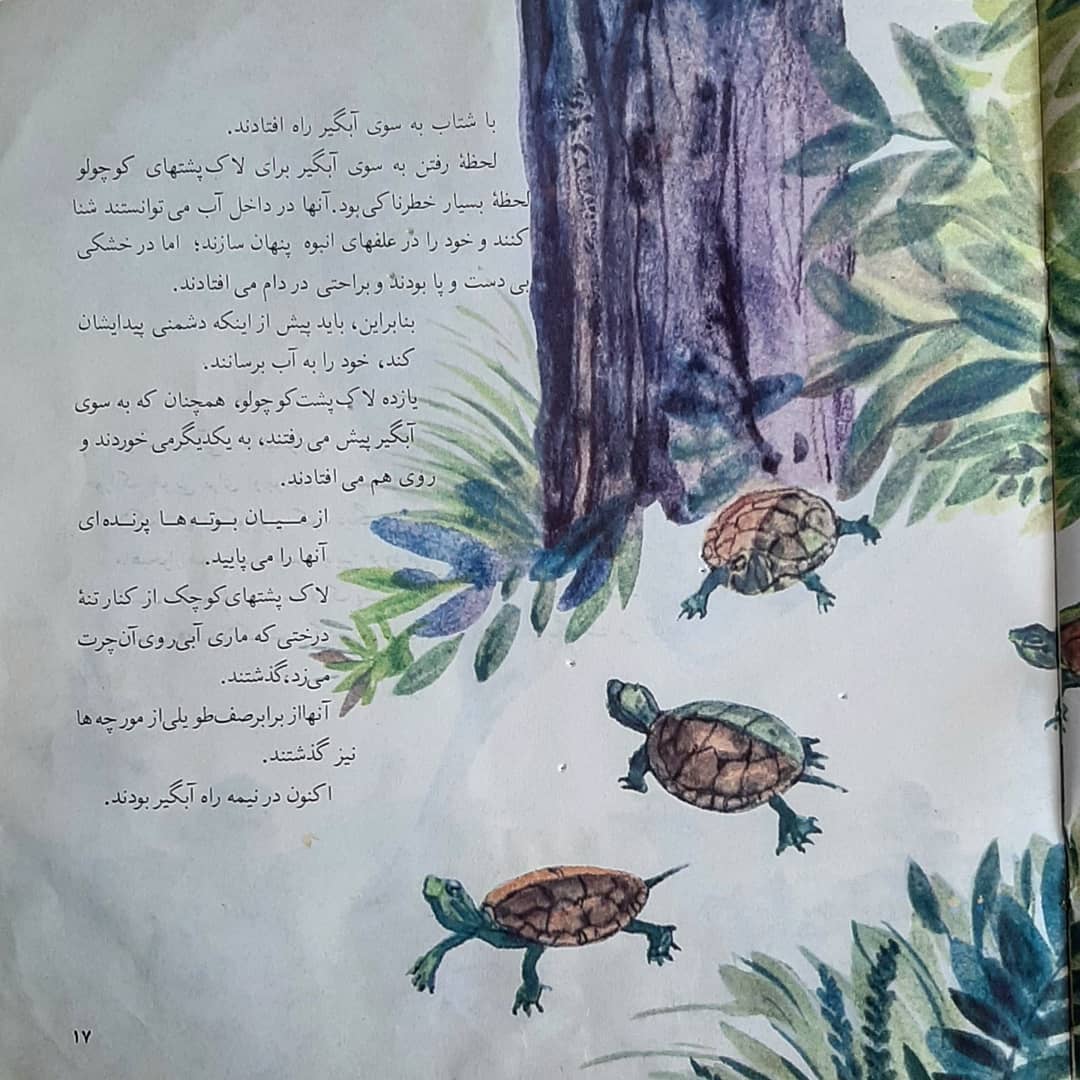 با شتاب به سوی آبگیر راه افتادند.
لحظهٔ رفتن به سوی آبگیر برای لاک‌پشتهای کوچولو
لحظهٔ بسیار خطرناکی بود. آنها در داخل آب می‌توانستند شنا
کنند و خود را در علفهای انبوه پنهان سازند؛ اما در خشکی
بی دست و پا بودند و براحتی در دام می‌افتادند.
بنابراین، باید پیش از اینکه دشمنی پیدایشان
کند، خود را به آب برسانند.
یازده لاک‌پشت کوچولو، همچنان که به سوی
آبگیر پیش می‌رفتند، به یکدیگر می‌خوردند و
روی هم می‌افتادند.
از میان بوته‌ها پرنده‌ای
آنها را می‌پایید.
لاک پشتهای کوچک از کنار تنهٔ
درختی که ماری آبی روی آن چرت
می‌زد، گذشتند.
آنها از برابر صف طویلی از مورچه‌ها
نیز گذشتند.
اکنون در نیمه راه آبگیر بودند.
۱۷